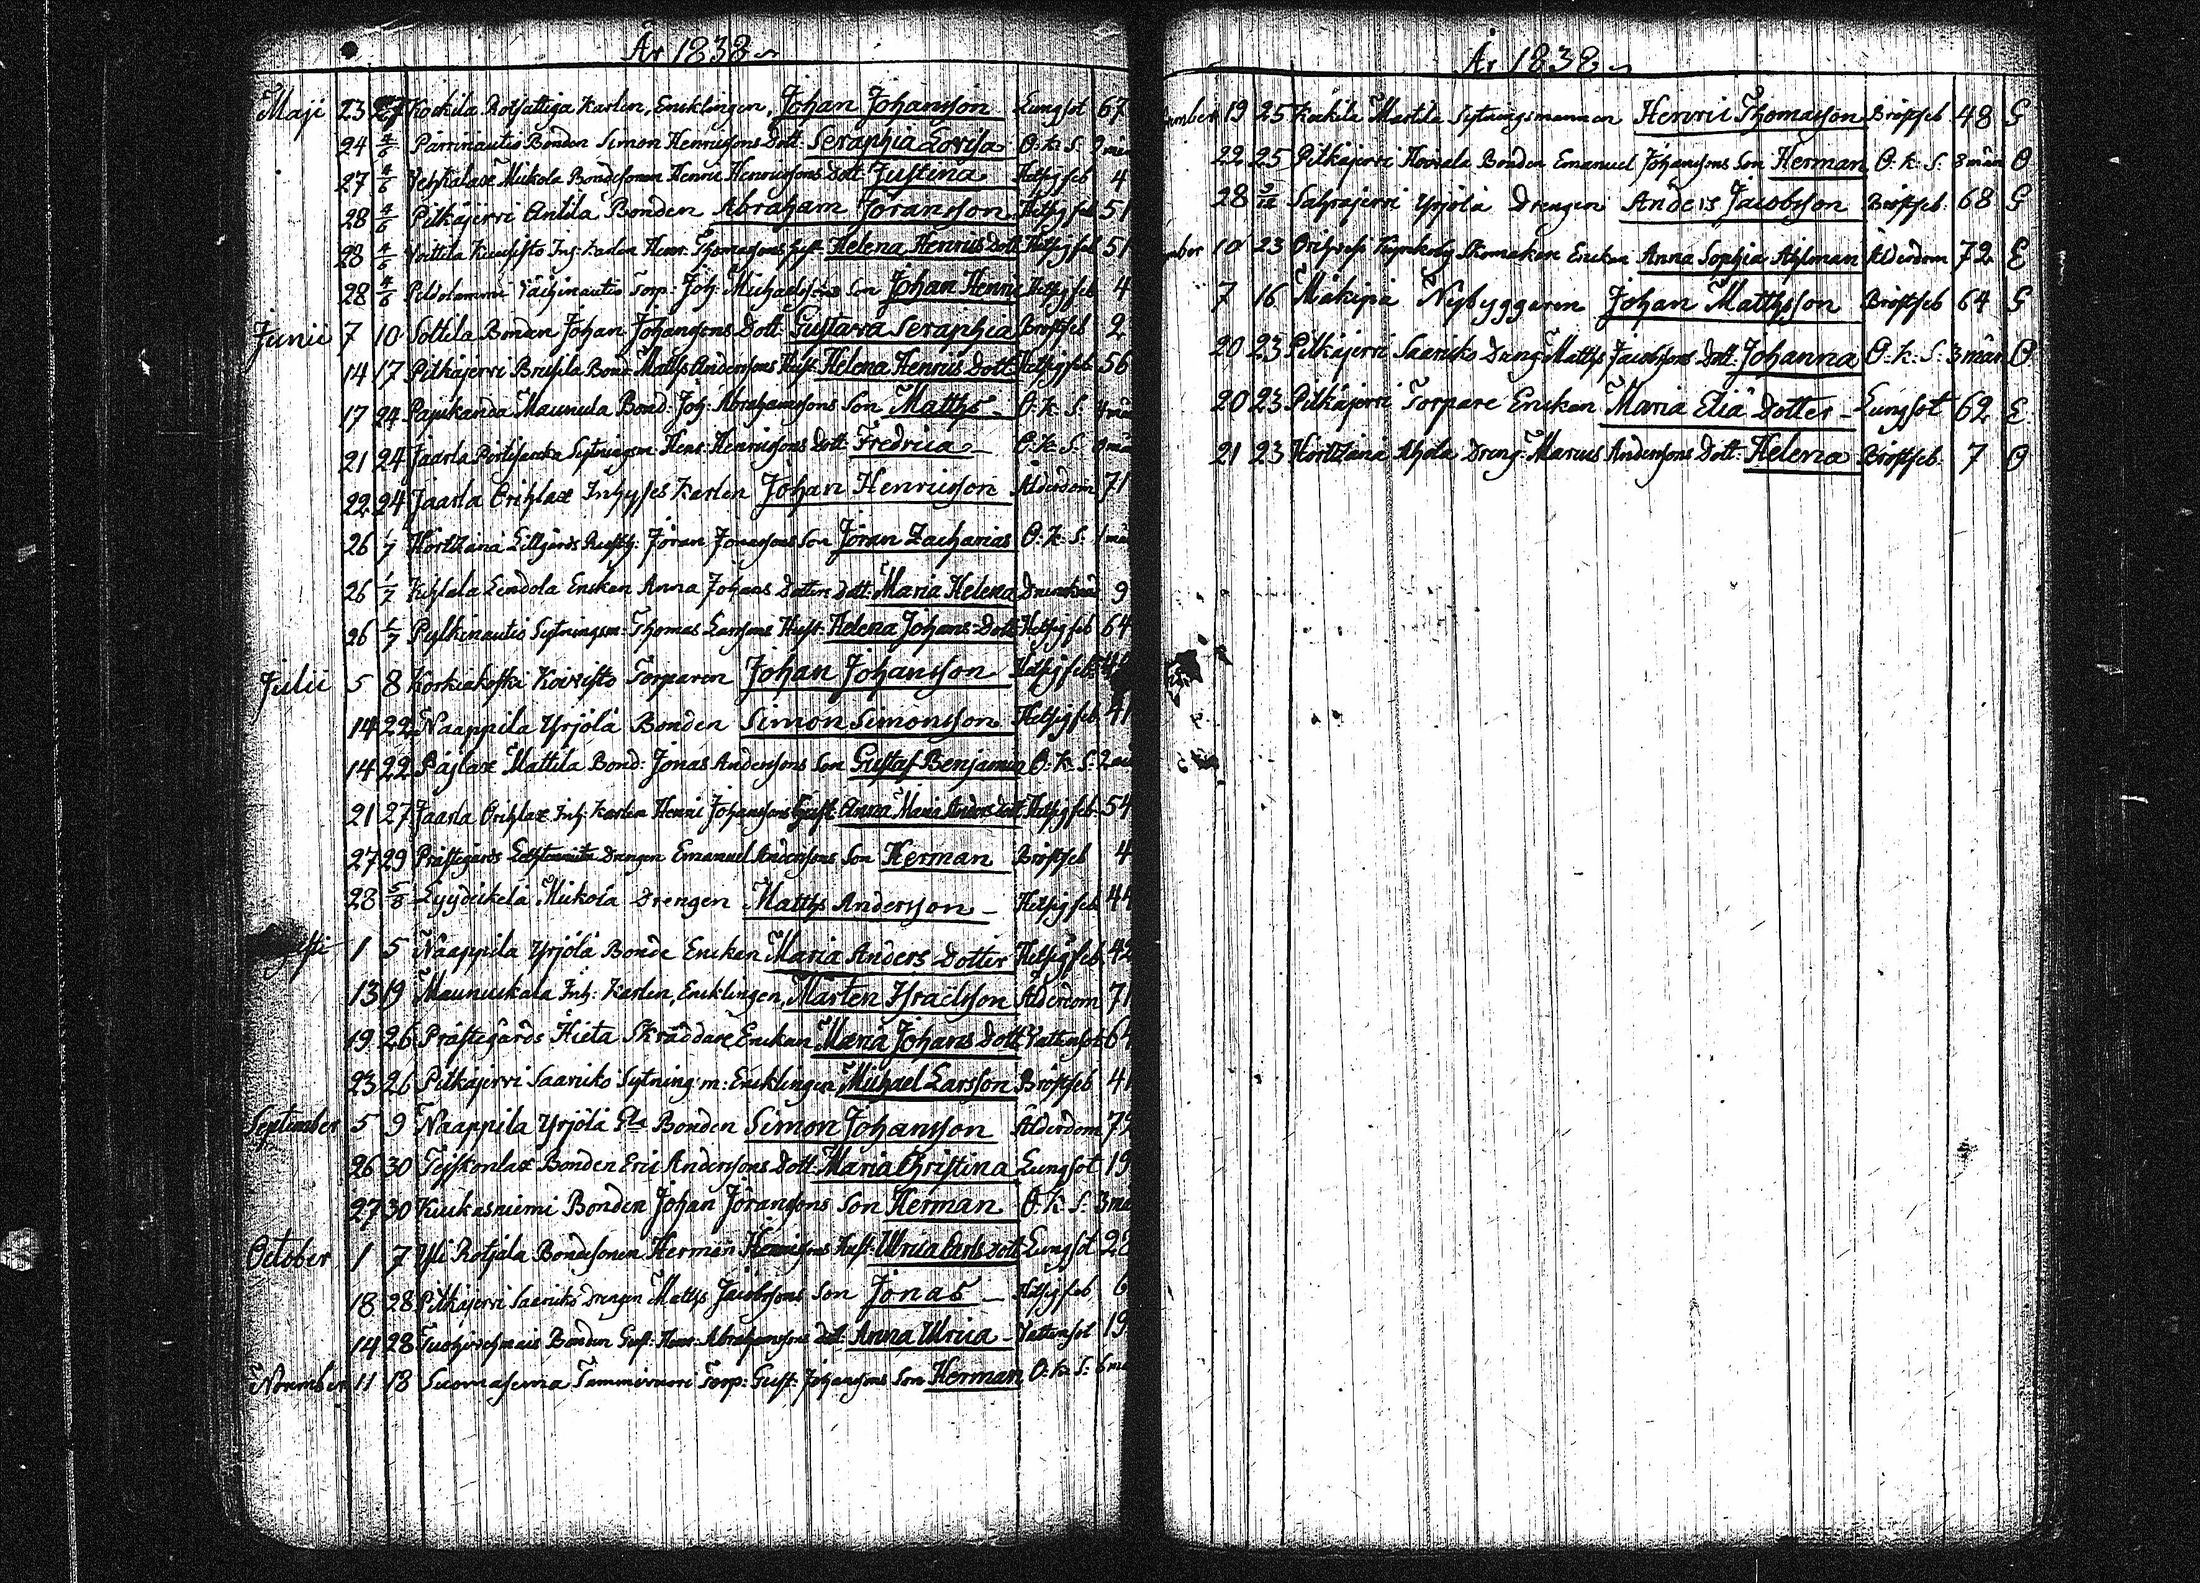 År 1838
Maji 23 27 Karlen, Enklingen, Johan Johansson Lungsot 67
24 4/6 Pärrinautio Bonden Simon Henricssons Dott. Seraphia Lovisa O. k. S.
27 4/6 Mickola Bondesonen Henric Henricssons Dott Justina Hetsig feb 4
28 4/6 Pitkäjerwi Anttila Bonden Abraham Jöransson Hetsig feb 51
28 4/6 Inh. Karlen Henr. Thomassons Hust. Helena Henrics Dott Hetsig feb 51
28 4/6 Torp. Joh. Michaelssons Son Johan Henric Hetsig feb 4
Junii 7 10 Sottila Bonden Johan Johanssons Dott Gustava Seraphia Bröstfeb 2
14 17 Pitkäjerri Bond Matths Anderssons Hust. Helena Henrics Dott Hetsig feb 56
17 24 Pajukanda Maunula Bond. Joh. Abrahamssons Son Matths O. k. S.
21 24 Jaarla Sytningsm Henr. Henricssons Dott Fredrica O. k. S.
22 24 Jaarla Orihlax Inhyses Karlen Johan Henricsson Ålderdom 71
26 1/7 Lillgårds Rusth. Jöran Jonassons Son Jöran Zacharias O. k. S. 1
26 1/7 Enkan Anna Johans Dotters Dott: Maria Helena 9
26 1/7 Pylkinautio Sytningsm. Thomas Larssons Hust. Helena Johans Dott Hetsig feb 64
Julii 5 8 Korkiakoski Koivisto Torparen Johan Johansson Hetsig feb
14 22 Naappila Yrjölä Bonden Simon Simonsson Hetsig feb 41
14 22 Pajlax Mattila Bond: Jonas Anderssons Son Gustaf Benjamin O. k. S. 2
21 27 Jaarla Orihlax Inh: Karlen Henric Johanssons Hust. Anna Maria Anders dott Hetsig feb. 54
27 29 Prästegårds Drengen Emanuel Anderssons Son Herman Bröstfeb 4
28 5/8 Mickola Drengen Matths Andersson Hetsig feb 44
1 5 Naappila Yrjölä Bonde Enckan Maria Anders Dotter Hetsig feb 42
13 19 Maunuckala Inh: Karlen, Encklingen, Mårten Israelsson Ålderdom 71
19 26 Prästegårds Hieta Skräddare Enckan Maria Johans Dott Vattusot 64
23 26 Pitkäjerri Saaricko Sytning:m: Encklingen Michael Larsson Bröstfeb 41
September 5 9 Naappila Yrjölä Bonden Simon Johansson Ålderdom 72
26 30 Bonden Eric Anderssons Dott. Maria Christina Lungsot 19
27 30 Kiukasniemi Bonden Johan Jöranssons Son Herman O. k. S. 3
October 1 7 Yli Rotjala Bondesonen Herman Henricssons Hust: Ulrica Carls Dott Lungsot
18 28 Pitkäjerri Saaricko Drengen Matths Jacobssons Son Jonas Hetsig feb 6
14 28 Bonden Gust: Henr: Abrahamssons Dott. Anna Ulrica Vattusot 19
November 11 18 Suomasema Torp: Gust: Johanssons Son Herman O. k. S. 6
År 1838
19 25 Kockila Martila Sytningsmannen Henric Thomasson Bröstfeb 48 G
22 25 Pitkäjerri Bonden Emanuel Johanssons Son Herman O. k. S. 3 mån O
28 2/12 Yrjölä Drengen Anders Jacobsson Bröstfeb. 68 G
10 23 Skomakare Enckan Anna Sophia Ahlman Ålderdom 72 E
7 16 Mäkipä Nybyggaren Johan Matthsson Bröstfeb 64 G
20 23 Pitkäjerri Saaricko Dreng Matths Jacobssons Dott. Johanna O. k. S. 3 mån O
20 23 Pitkäjerri Torpare Enckan Maria Eliä Dotter Lungsot 62 E
21 23 Ahola Dreng: Marcus Anderssons Dott: Helena Bröstfeb. 7 O